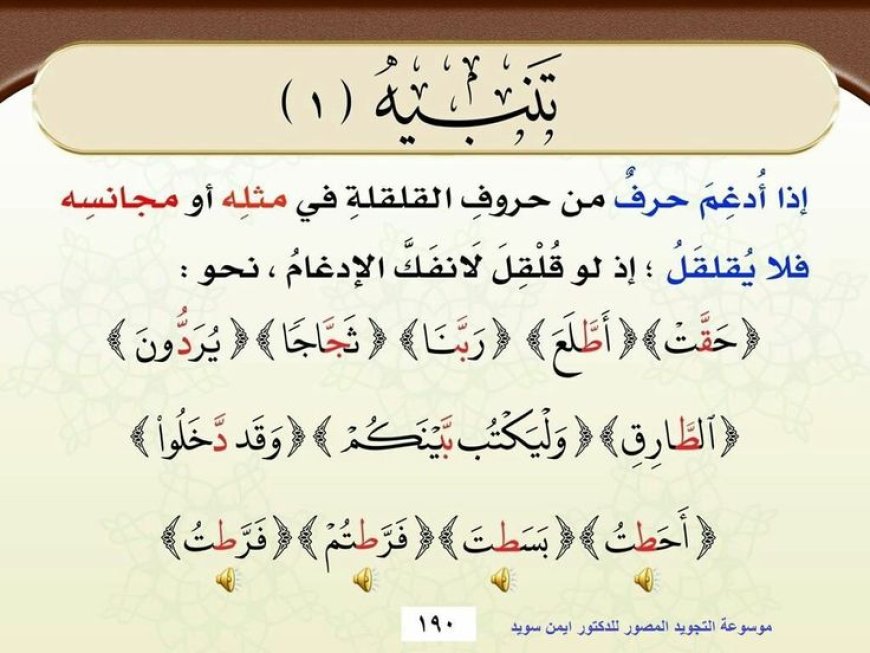 تَنبِيهٌ (١)
إذا أُدغِمَ حرفٌ من حروفِ القلقلةِ في مثلِه أو مجانسِه
فلا يُقلقَلُ ؛ إذ لو قُلْقِلَ لَانفَكَّ الإدغامُ ، نحو :
﴿حَقَّتْ﴾ ﴿أَطَّلَعَ﴾ ﴿رَبَّنَا﴾ ﴿ثَجَّاجًا﴾ ﴿يُرَدُّونَ﴾
﴿ٱلطَّارِقِ﴾ ﴿وَلْيَكْتُب بَّيْنَكُمْ﴾ ﴿وَقَد دَّخَلُوا۟﴾
﴿أَحَطتُ﴾ ﴿بَسَطتَ﴾ ﴿فَرَّطتُمْ﴾ ﴿فَرَّطتُ﴾
موسوعة التجويد المصور للدكتور ايمن سويد
١٩٠